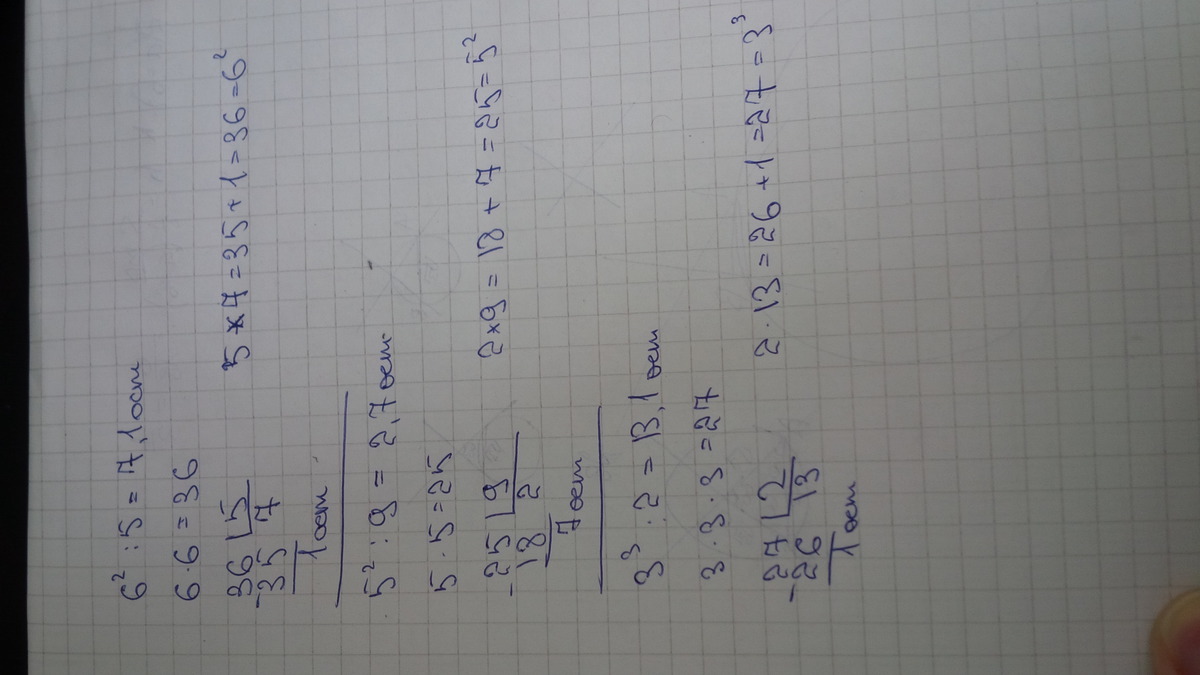 6² : 5 = 7,1 ост
6 · 6 = 36
36 5
-35 7
1 ост
5 × 7 = 35 + 1 = 36 = 6²
5² : 9 = 2,7 ост
5 · 5 = 25
-25 9
18 2
7 ост
2 × 9 = 18 + 7 = 25 = 5²
3³ : 2 = 13,1 ост
3 · 3 · 3 = 27
-27 2
26 13
1 ост
2 · 13 = 26 + 1 = 27 = 3³